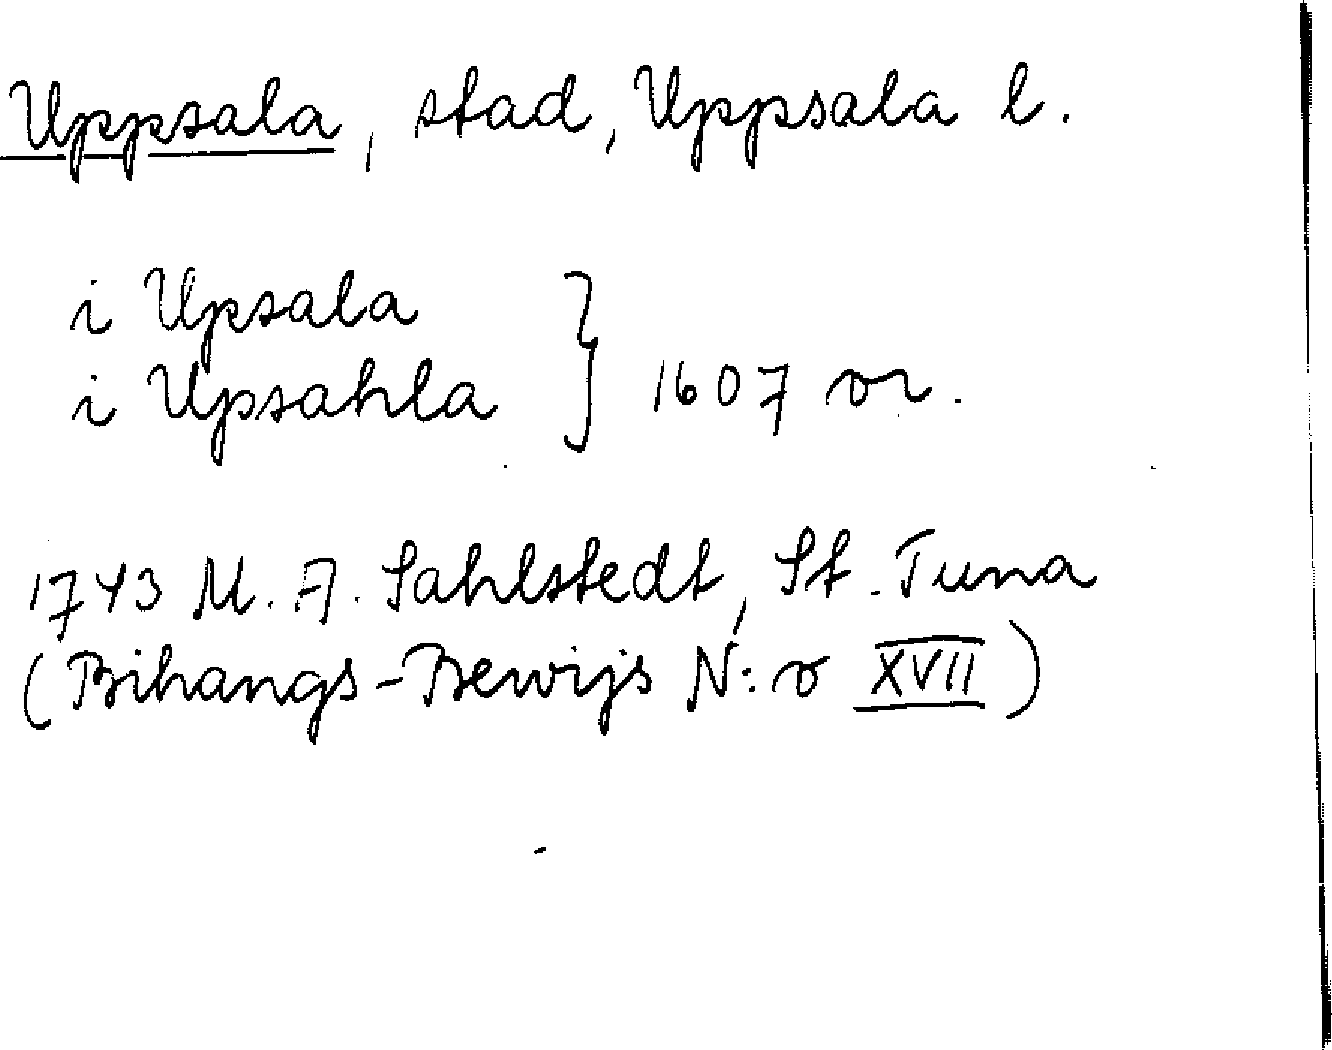 Uppsala, stad, Uppsala l.
i Upsala
i Upsahla } 1607 or.
1743 M. A. Sahlstedt, St. Tuna
(Bihangs-Bewijs N:o XVII)